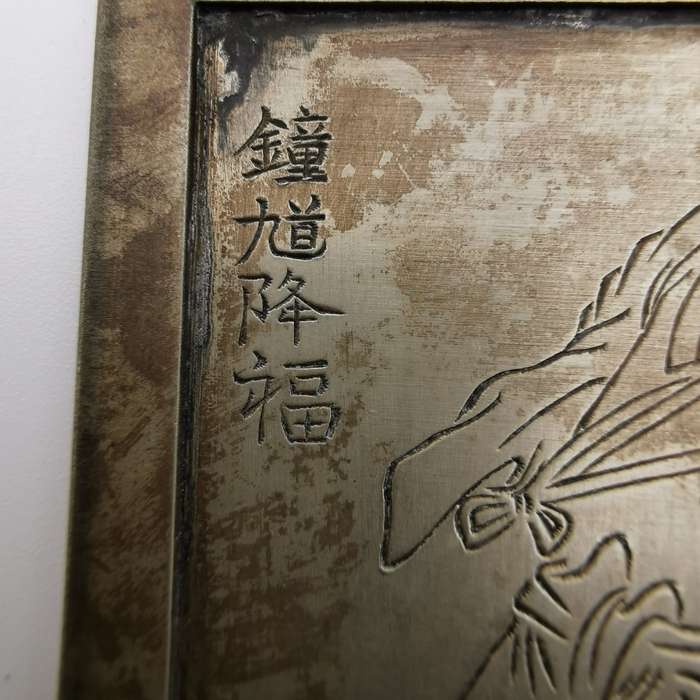 鐘馗降福